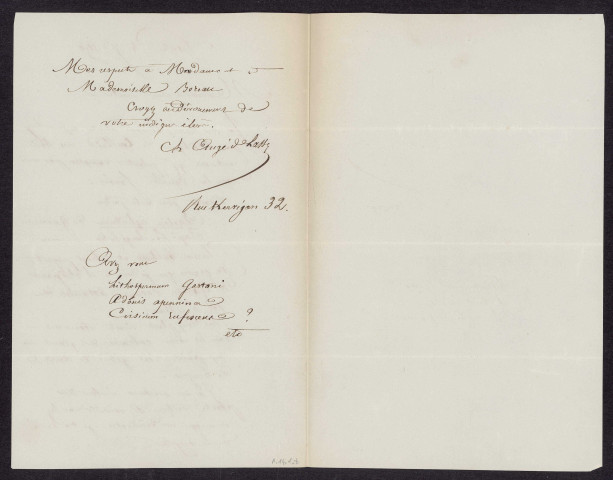 Mes respects à Madame et à
Mademoiselle Boreau
Croyez au dévouement de
votre indigne élève.
Ch Augé de Lassu
Rue Kervégan 32.
Avez vous
Lithospermum Gastoni
Adonis apennina
Cirsium rufescens ?
etc